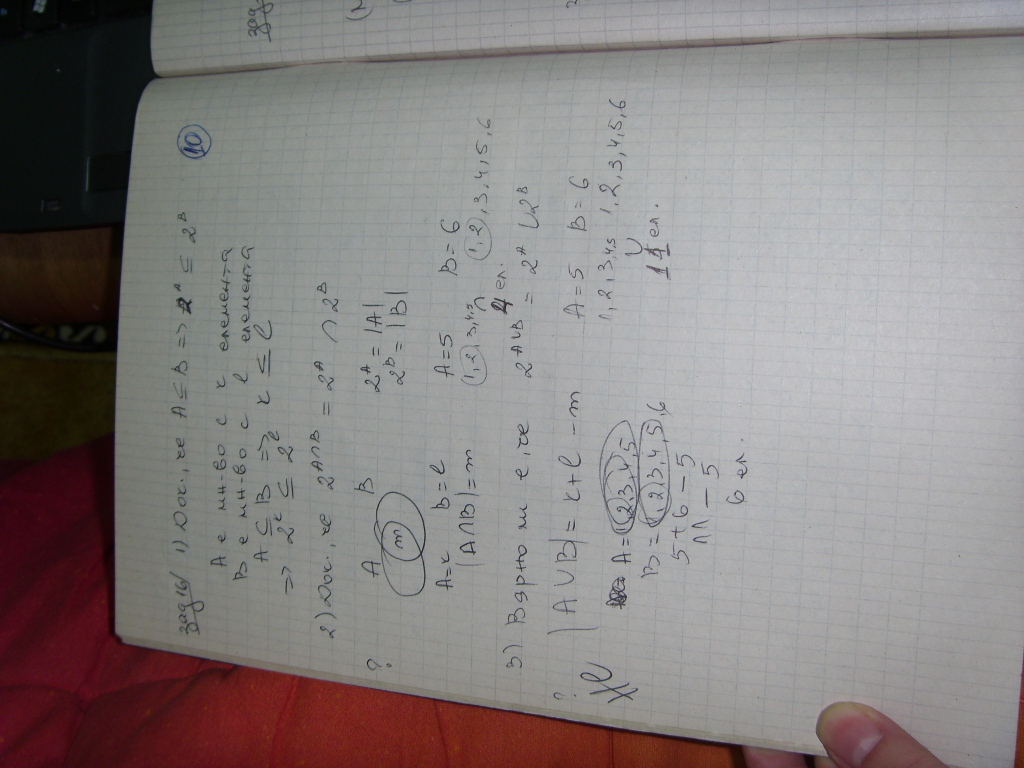 10
зад 16/ 1) Док., че A ⊆ B => 2^A ⊆ 2^B
A е мн-во с k елемента
B е мн-во с l елемента
A ⊆ B => k ≤ l
=> 2^k ≤ 2^l
2) Док., че 2^A∩B = 2^A ∩ 2^B
A B 2^A = |A|
m 2^B = |B|
?
A=k B=l A=5 B=6
|A∩B|=m 1,2,3,4,5 ∩ 1,2,3,4,5,6
4 ел.
3) Вярно ли е, че 2^A∪B = 2^A ∪ 2^B
?
|A∪B| = k+l-m A=5 B=6
Не 1,2,3,4,5 ∪ 1,2,3,4,5,6
A=1,2,3,4,5 11 ел.
B=1,2,3,4,5,6
5+6-5
11-5
6 ел.